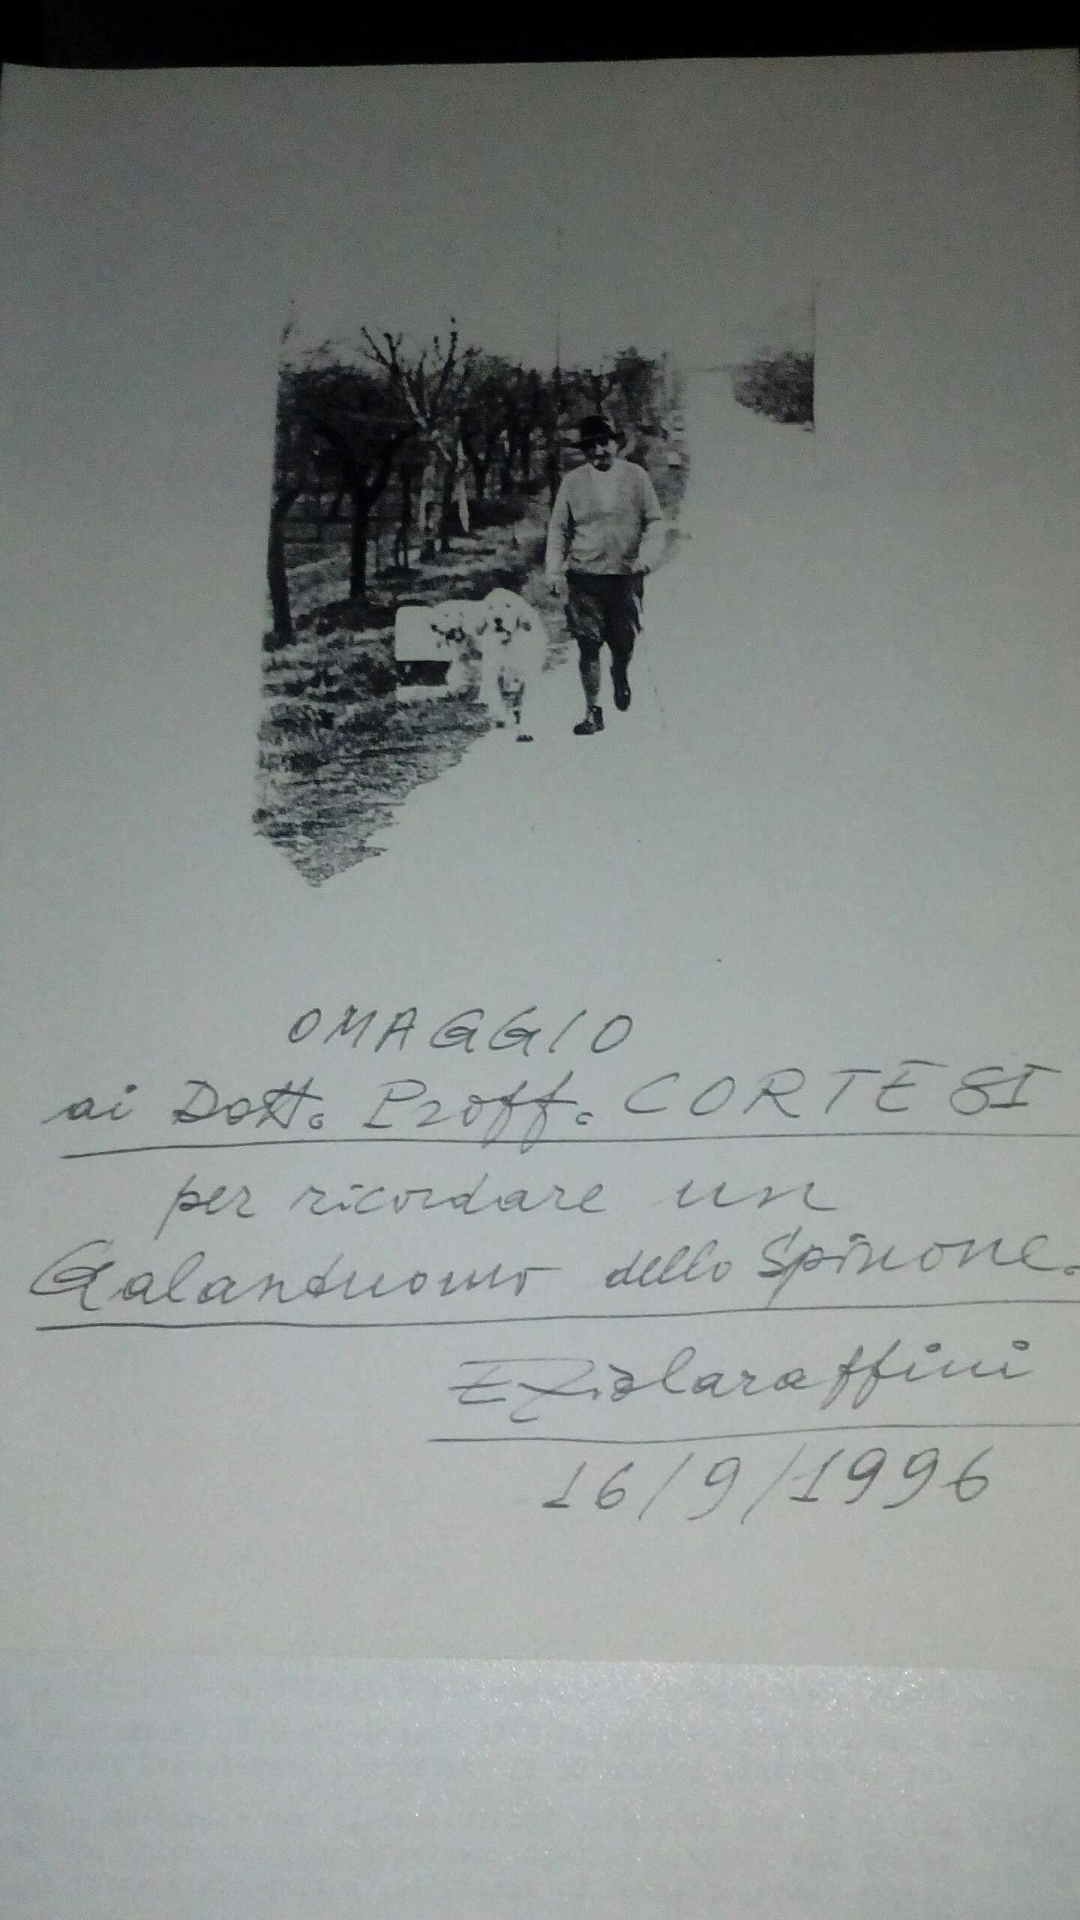 OMAGGIO
ai Dott. Proff. CORTESI
per ricordare un
Galantuomo dello Spinone.
16/9/1996